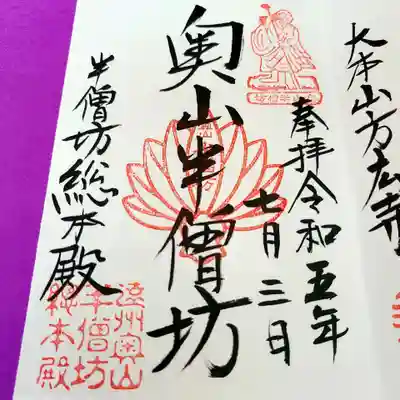 大本山方広寺
奉拝令和五年
七月三日
奥山半僧坊
半僧坊総本殿
遠州奥山
半僧坊
総本殿